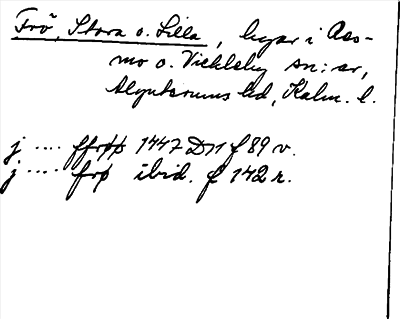 Frö, Stora o. Lilla, byar i Res-
mo o. Vickleby sn:ar,
Algutsrums hd, Kalm. l.
j .... ffrøø 1447 D11 f 89 v.
j .... frø ibid. f 142 r.